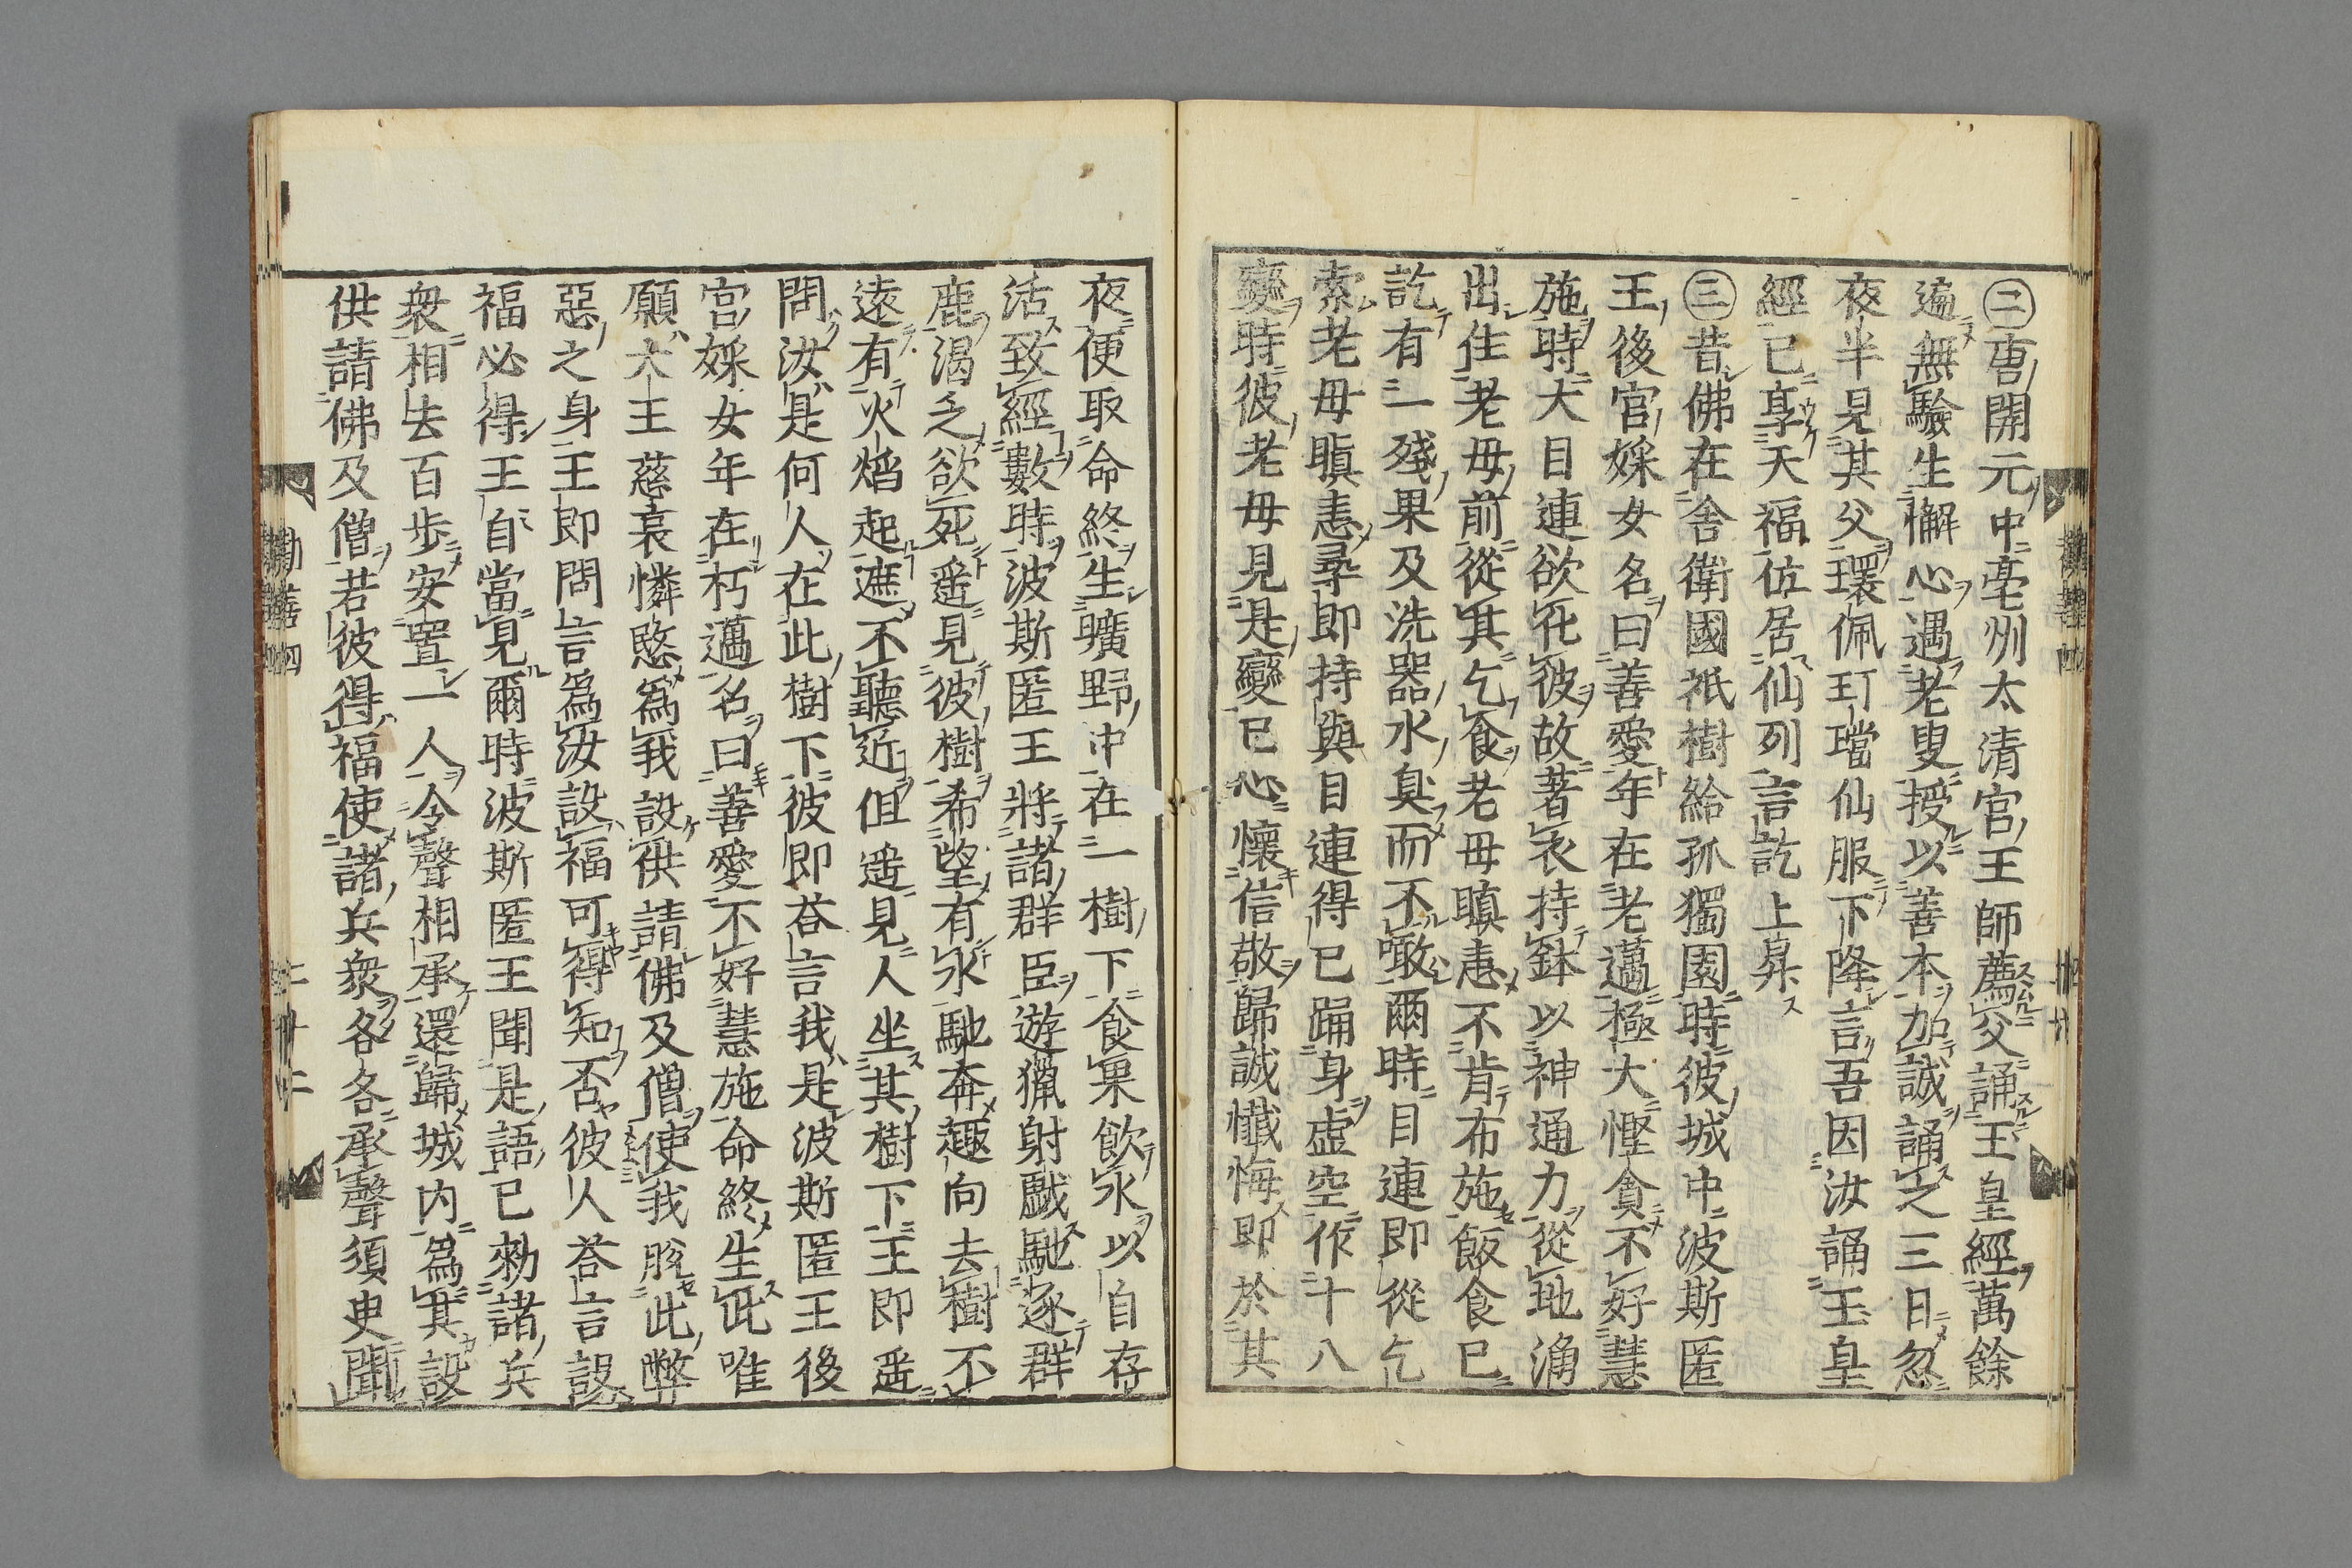 ㊁唐開元中亳州太清宮王師薦父誦玉皇經萬餘
遍無驗生懈心遇老叟授以善本加誠誦之三日忽
夜半見其父環佩玎璫仙服下降言吾因汝誦玉皇
經已享天福位居仙列言訖上昇
㊂昔佛在舍衛國祇樹給孤獨園時彼城中波斯匿
王後宮婇女名曰善愛年在老邁極大慳貪不好慧
施時大目連欲化彼故著衣持鉢以神通力從地涌
出住老母前從其乞食老母瞋恚不肯布施飯食已
訖有一殘果及洗器水臭而不噉爾時目連即從乞
索老母瞋恚尋即持與目連得已踊身虛空作十八
變時彼老母見是變已心懷信敬歸誠懺悔即於其
夜便取命終生曠野中在一樹下食菓飲水以自存
活致經數時波斯匿王將諸群臣遊獵射戲馳逐群
鹿渴乏欲死遥見彼樹希望有水馳奔趣向去樹不
遠有火焰起遮不聽近但遥見人坐其樹下王即遥
問汝是何人在此樹下彼即荅言我是波斯匿王後
宮婇女年在朽邁名曰善愛不好慧施命終生此唯
願大王慈哀憐愍為我設供請佛及僧使我脫此弊
惡之身王即問言為汝設福可得知否彼人荅言設
福必得王自當見爾時波斯匿王聞是語已勅諸兵
衆相去百步安置一人令聲相承還歸城内為其設
供請佛及僧若彼得福使諸兵衆各各承聲須臾聞
勸善四
二十二